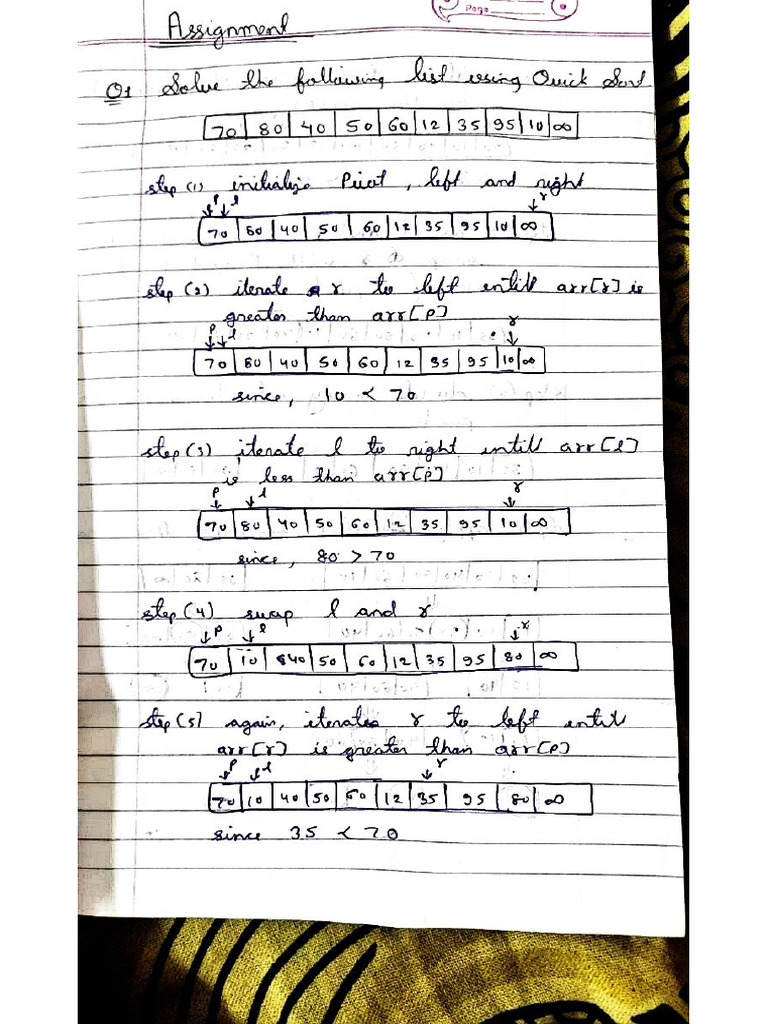 Page
Assignment
Q1 Solve the following list using Quick Sort
70 80 40 50 60 12 35 95 10 ∞
step (1) initialize Pivot, left and right
p l r
70 60 40 50 60 12 35 95 10 ∞
step (2) iterate r to left untill arr[r] is
greater than arr[p]
p l r
70 80 40 50 60 12 35 95 10 ∞
since, 10 < 70
step (3) iterate l to right untill arr[l]
is less than arr[p]
p l r
70 80 40 50 60 12 35 95 10 ∞
since, 80 > 70
step (4) swap l and r
p l r
70 10 40 50 60 12 35 95 80 ∞
step (5) again, iterates r to left untill
arr[r] is greater than arr[p]
p l r
70 10 40 50 60 12 35 95 80 ∞
since 35 < 70